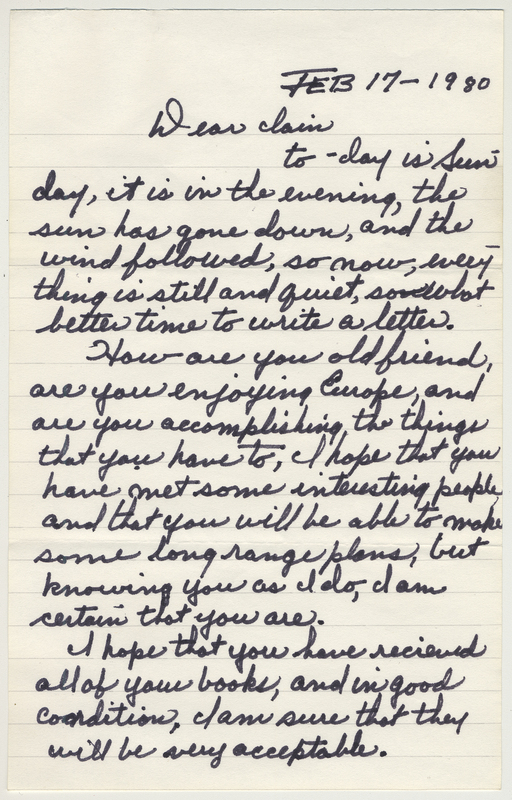 FEB 17-1980
Dear clain
to-day is Sun-
day, it is in the evening, the
sun has gone down, and the
wind followed, so now, every
thing is still and quiet, so what
better time to write a letter.
How are you old friend,
are you enjoying Europe, and
are you accomplishing, the things
that you have to, I hope that you
have met some interesting people,
and that you will be able to make
some long range plans, but
knowing you as I do, I am
certain that you are.
I hope that you have recieved
all of your books, and in good
condition, I am sure that they
will be very acceptable.